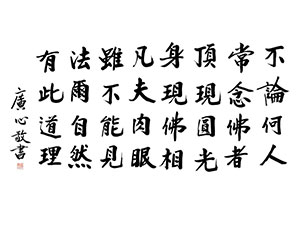 不論何人
常念佛者
頂現圓光
身現佛相
凡夫肉眼
雖不能見
法爾自然
有此道理
廣心敬書